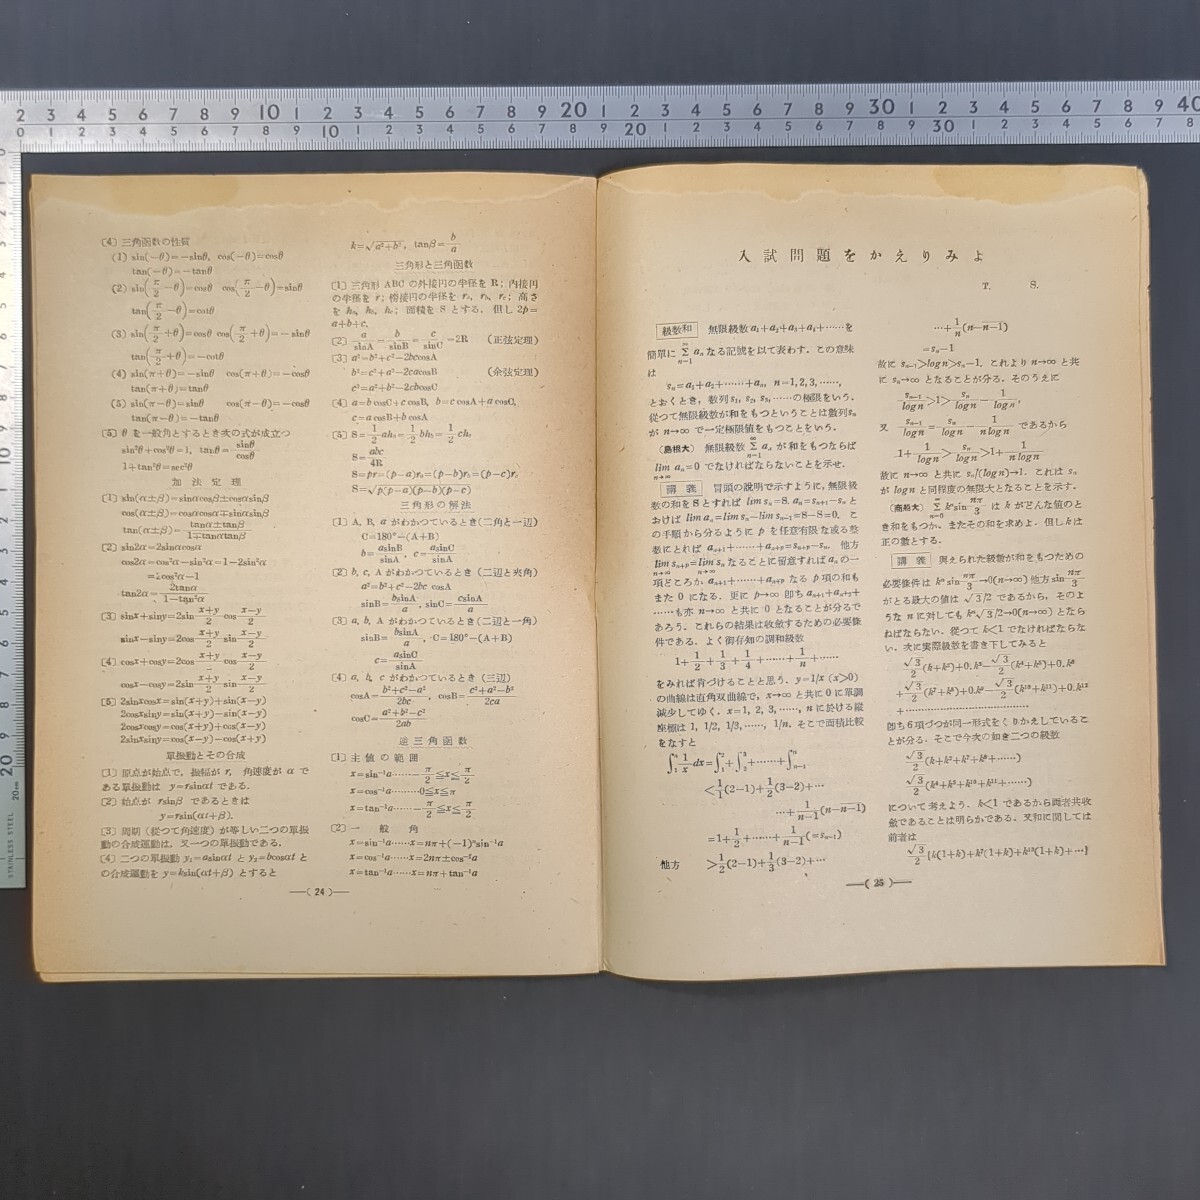 〔4〕三角函数の性質
(1) sin(−θ)=−sinθ, cos(−θ)=cosθ
tan(−θ)=−tanθ
(2) sin(π/2−θ)=cosθ cos(π/2−θ)=sinθ
tan(π/2−θ)=cotθ
(3) sin(π/2+θ)=cosθ cos(π/2+θ)=−sinθ
tan(π/2+θ)=−cotθ
(4) sin(π+θ)=−sinθ cos(π+θ)=−cosθ
tan(π+θ)=tanθ
(5) sin(π−θ)=sinθ cos(π−θ)=−cosθ
tan(π−θ)=−tanθ
〔5〕θ を一般角とするとき次の式が成立つ
sin²θ+cos²θ=1, tanθ=sinθ/cosθ
1+tan²θ=sec²θ
加法定理
〔1〕sin(α±β)=sinαcosβ±cosαsinβ
cos(α±β)=cosαcosα∓sinαsinβ
tan(α±β)=(tanα±tanβ)/(1∓tanαtanβ)
〔2〕sin2α=2sinαcosα
cos2α=cos²α−sin²α=1−2sin²α
=2cos²α−1
tan2α=2tanα/(1−tan²α)
〔3〕sinx+siny=2sin (x+y)/2 cos (x−y)/2
sinx−siny=2cos (x+y)/2 sin (x−y)/2
〔4〕cosx+cosy=2cos (x+y)/2 cos (x−y)/2
cosx−cosy=2sin (x+y)/2 sin (x−y)/2
〔5〕2sinxcosx=sin(x+y)+sin(x−y)
2cosxsiny=sin(x+y)−sin(x−y)
2cosxcosy=cos(x+y)+cos(x−y)
2sinxsiny=cos(x−y)−cos(x+y)
單振動とその合成
〔1〕原点が始点で, 振幅が r, 角速度が α で
ある單振動は y=rsinαt である.
〔2〕始点が rsinβ であるときは
y=rsin(αt+β).
〔3〕周期 (從つて角速度) が等しい二つの單振
動の合成運動は, 又一つの單振動である.
〔4〕二つの單振動 y₁=asinαt と y₂=bcosαt と
の合成運動を y=ksin(αt+β) とすると
k=√(a²+b²), tanβ=b/a
三角形と三角函数
〔1〕三角形 ABC の外接円の半径を R; 内接円
の半径を r; 傍接円の半径を rₐ, r_b, r_c; 高さ
を hₐ, h_b, h_c; 面積を S とする. 但し 2p=
a+b+c.
〔2〕a/sinA=b/sinB=c/sinC=2R (正弦定理)
〔3〕a²=b²+c²−2bccosA
b²=c²+a²−2cacosB (余弦定理)
c²=a²+b²−2cbcosC
〔4〕a=b cosC+c cosB, b=c cosA+a cosC,
c=a cosB+b cosA
〔5〕S=1/2 ahₐ=1/2 bh_b=1/2 ch_c
S=abc/4R
S=pr=(p−a)rₐ=(p−b)r_b=(p−c)r_c
S=√p(p−a)(p−b)(p−c)
三角形の解法
〔1〕A, B, a がわかつているとき (二角と一辺)
C=180°−(A+B)
b=asinB/sinA, c=asinC/sinA
〔2〕b, c, A がわかつているとき (二辺と夾角)
a²=b²+c²−2bc cosA
sinB=bsinA/a, sinC=csinA/a
〔3〕a, b, A がわかつているとき (二辺と一角)
sinB=bsinA/a, C=180°−(A+B)
c=asinC/sinA
〔4〕a, b, c がわかつているとき (三辺)
cosA=(b²+c²−a²)/2bc, cosB=(c²+a²−b²)/2ca
cosC=(a²+b²−c²)/2ab
逆三角函数
〔1〕主値の範囲
x=sin⁻¹a……−π/2≦x≦π/2
x=cos⁻¹a………0≦x≦π
x=tan⁻¹a……−π/2≦x≦π/2
〔2〕一般角
x=sin⁻¹a……x=nπ+(−1)ⁿsin⁻¹a
x=cos⁻¹a……x=2nπ±cos⁻¹a
x=tan⁻¹a……x=nπ+tan⁻¹a
—( 24 )—
入試問題をかえりみよ
T. S.
級数和 無限級数 a₁+a₂+a₃+a₄+……を
簡單に Σ(n=1→∞) aₙ なる記號を以て表わす. この意味
は
sₙ=a₁+a₂+……+aₙ, n=1,2,3,……,
とおくとき, 数列 s₁, s₂, s₃, ……の極限をいう.
從つて無限級数が和をもつということは数列 sₙ
が n→∞ で一定極限値をもつことをいう.
(島根大) 無限級数 Σ(n=1→∞) aₙ が和をもつならば
lim(n→∞) aₙ=0 でなければならないことを示せ.
講義 冒頭の說明で示すように, 無限級
数の和を S とすれば lim sₙ=S. aₙ=sₙ₊₁−sₙ と
おけば lim aₙ=lim sₙ−lim sₙ₋₁=S−S=0. こ
の手順から分るように p を任意有限な或る整
数にとれば aₙ₊₁+……+aₙ₊ₚ=sₙ₊ₚ−sₙ. 他方
lim(n→∞) sₙ₊ₚ=lim(n→∞) sₙ なることに留意すれば aₙ の一
項どころか aₙ₊₁+……+aₙ₊ₚ なる p 項の和も
また 0 になる. 更に p→∞ 即ち aₙ₊₁+aₙ₊₂+
……も亦 n→∞ と共に 0 となることが分るで
あろう. これらの結果は收斂するための必要條
件である. よく御存知の調和級数
1+1/2+1/3+1/4+……+1/n+……
をみれば肯づけることと思う. y=1/x (x>0)
の曲線は直角双曲線で, x→∞ と共に 0 に單調
減少してゆく. x=1, 2, 3, ……, n に於ける縦
座標は 1, 1/2, 1/3, ……, 1/n. そこで面積比較
をなすと
∫₁ⁿ 1/x dx=∫₁²+∫₂³+……+∫ₙ₋₁ⁿ
<1/1(2−1)+1/2(3−2)+…
…+1/(n−1)(n−n−1)
=1+1/2+……+1/(n−1)(=sₙ₋₁)
他方 >1/2(2−1)+1/3(3−2)+…
…+1/n(n−n−1)
=sₙ−1
故に sₙ₋₁>log n>sₙ−1. これより n→∞ と共
に sₙ→∞ となることが分る. そのうえに
sₙ₋₁/log n>1>sₙ/log n−1/log n,
又 sₙ₋₁/log n=sₙ/log n−1/(n log n) であるから
1+1/log n>sₙ/log n>1+1/(n log n)
故に n→∞ と共に sₙ/(log n)→1. これは sₙ
が log n と同程度の無限大となることを示す.
(商船大) Σ(n=0→∞) kⁿsin nπ/3 は k がどんな値のと
き和をもつか. またその和を求めよ. 但し k は
正の数とする.
講義 與えられた級数が和をもつための
必要條件は kⁿ sin nπ/3→0(n→∞) 他方 sin nπ/3
がとる最大の値は √3/2 であるから, そのよ
うな n に対しても kⁿ√3/2→0(n→∞) となら
ねばならない. 從つて k<1 でなければならな
い. 次に実際級数を書き下してみると
√3/2(k+k²)+0.k³−√3/2(k⁴+k⁵)+0.k⁶
+√3/2(k⁷+k⁸)+0.k⁹−√3/2(k¹⁰+k¹¹)+0.k¹²
+………………………………
即ち6項づつが同一形式をくりかえしているこ
とが分る. そこで今次の如き二つの級数
√3/2(k+k²+k⁷+k⁸+……)
√3/2(k⁴+k⁵+k¹⁰+k¹¹+……)
について考えよう. k<1 であるから両者共收
斂であることは明らかである. 又和に関しては
前者は
√3/2{k(1+k)+k⁷(1+k)+k¹³(1+k)+…}
—( 25 )—
STAINLESS STEEL